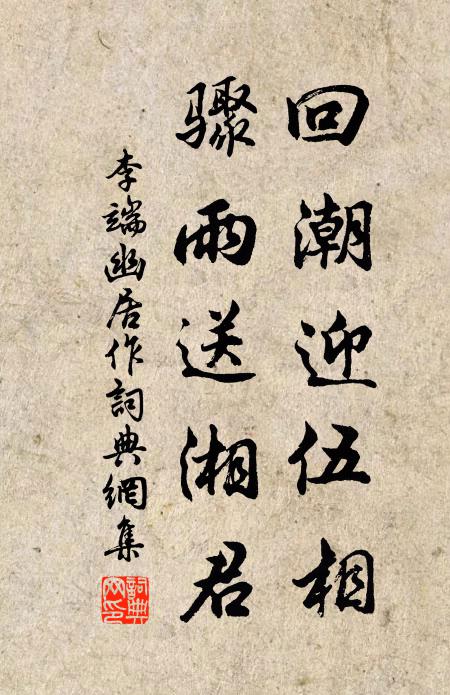 回潮迎伍相
骤雨送湘君
李端幽居作詞典網集
詞典
网印